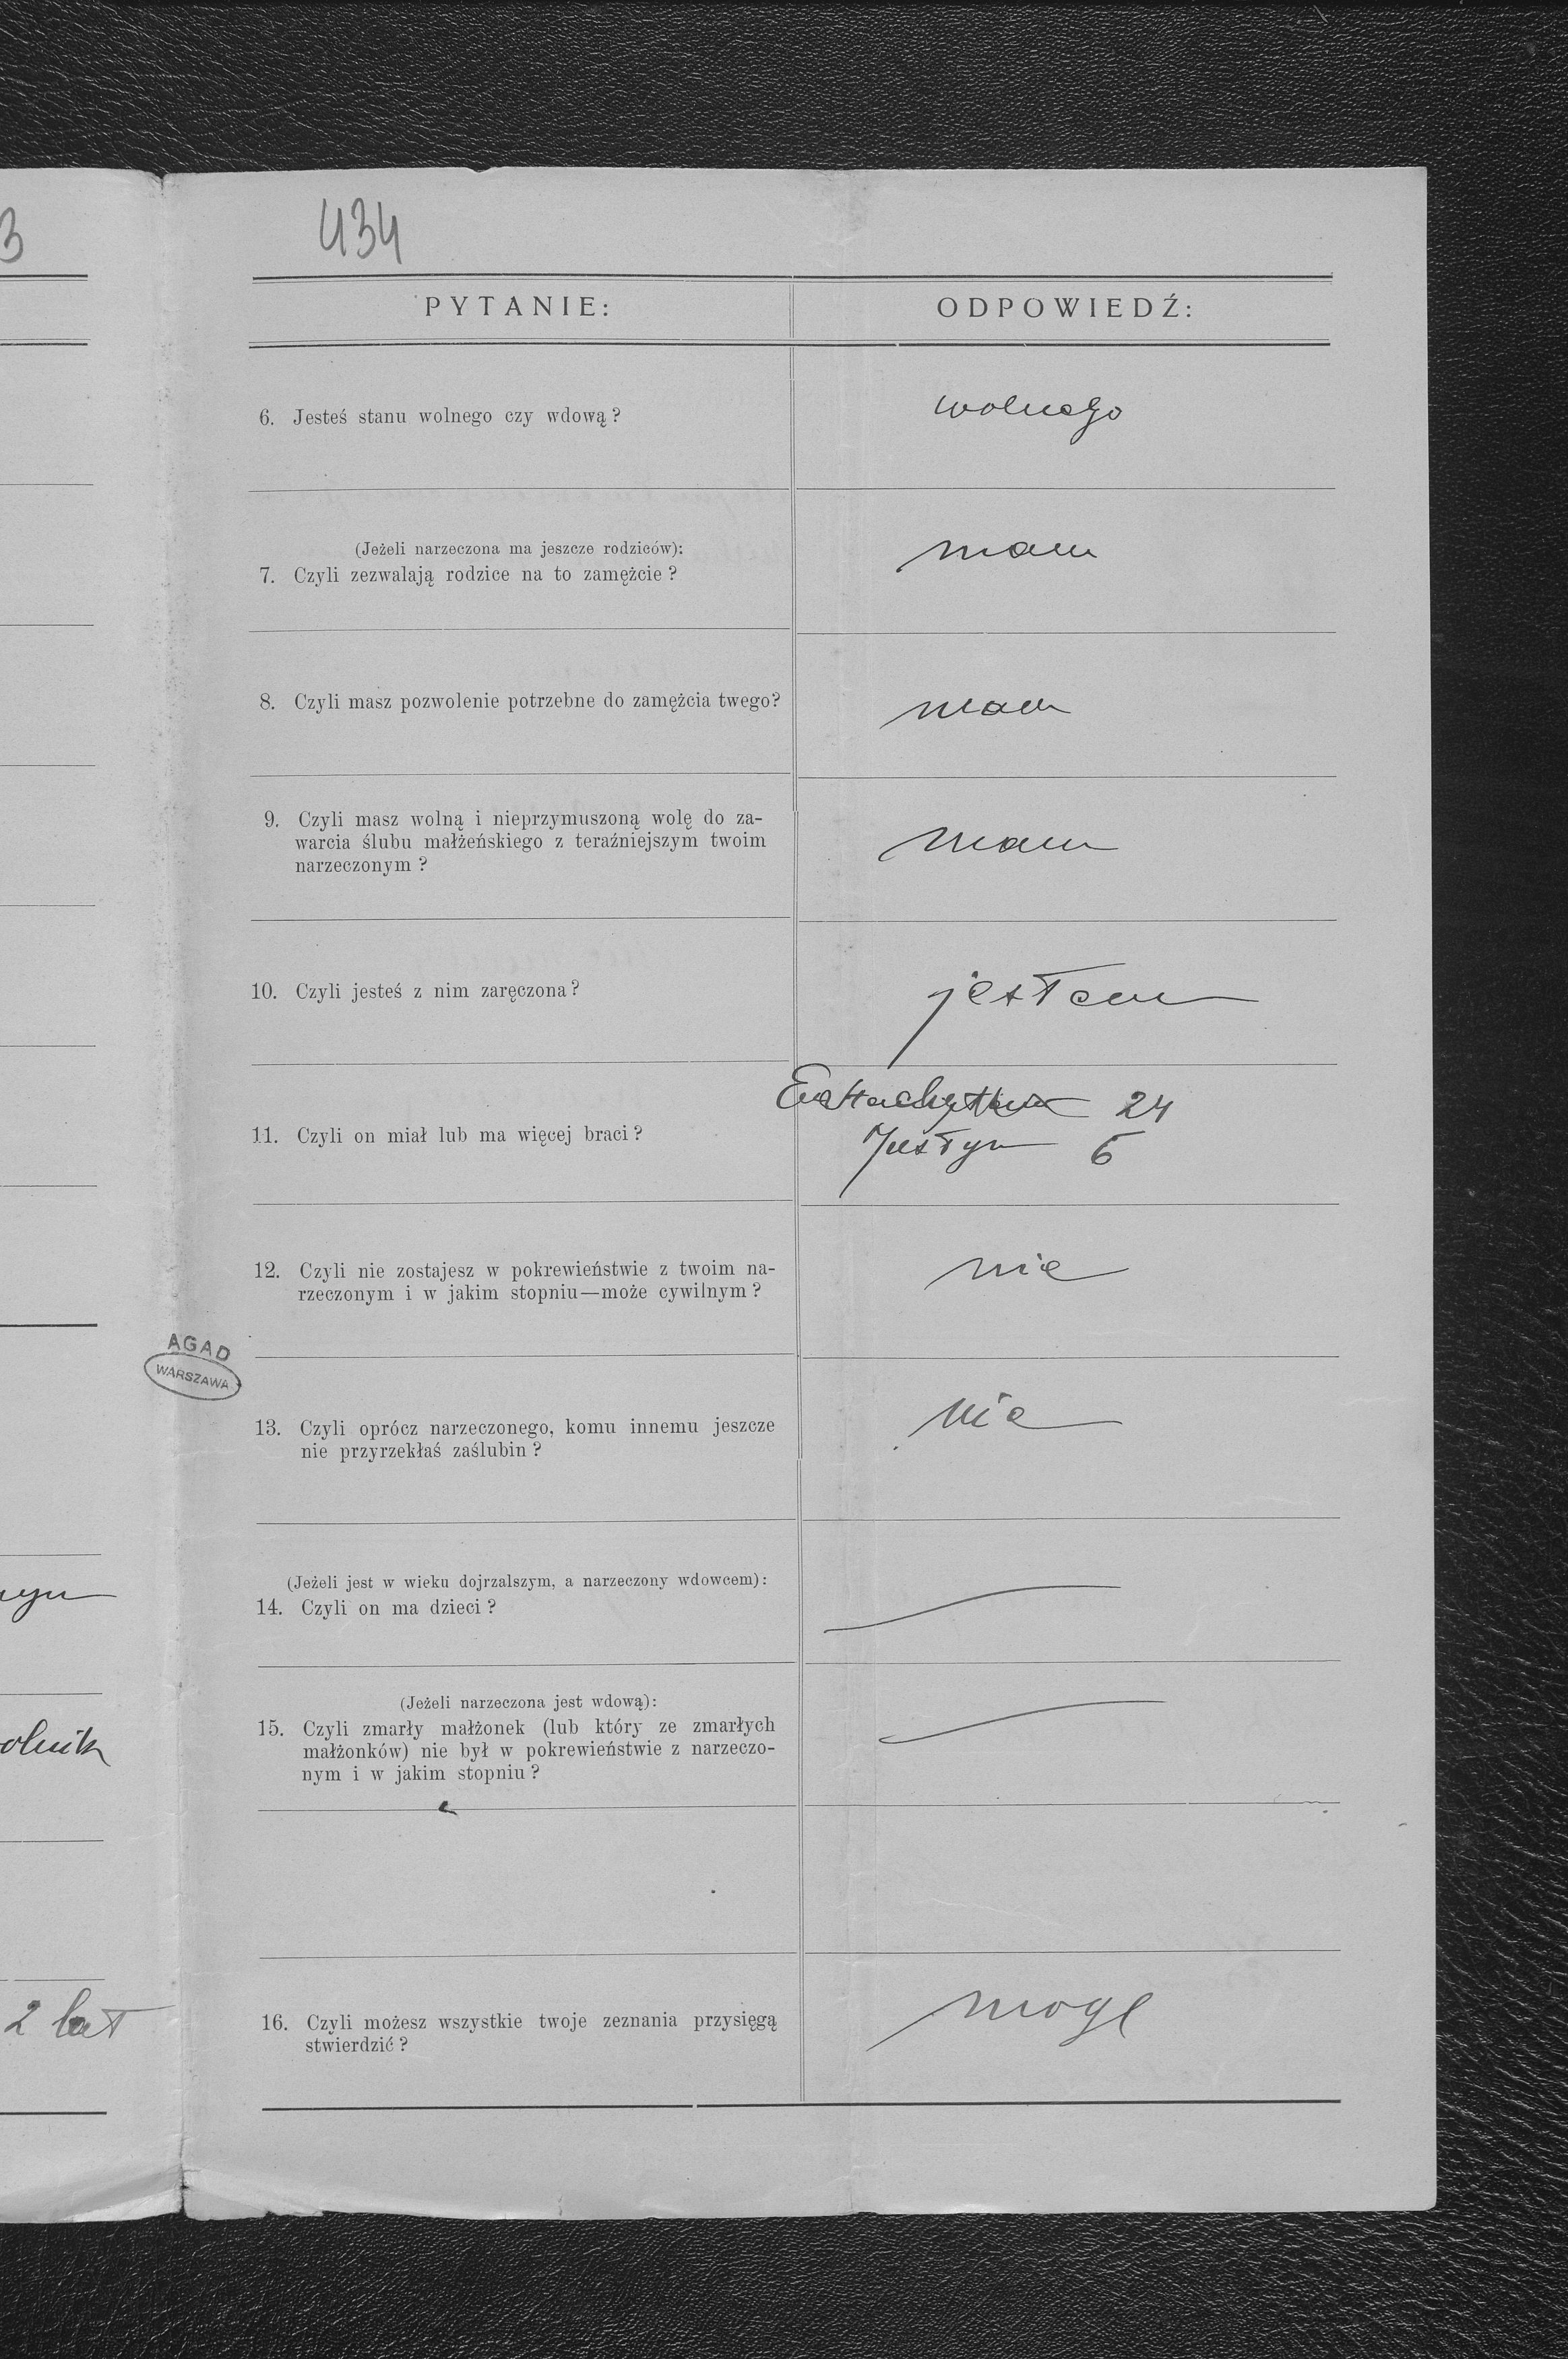 3
434
PYTANIE:
ODPOWIEDŹ:
6. Jesteś stanu wolnego czy wdową?
wolnego
(Jeżeli narzeczona ma jeszcze rodziców):
7. Czyli zezwalają rodzice na to zamężcie?
mam
8. Czyli masz pozwolenie potrzebne do zamężcia twego?
mam
9. Czyli masz wolną i nieprzymuszoną wolę do za-
warcia ślubu małżeńskiego z teraźniejszym twoim
narzeczonym?
mam
10. Czyli jesteś z nim zaręczona?
jestem
11. Czyli on miał lub ma więcej braci?
24
Justyn 6
12. Czyli nie zostajesz w pokrewieństwie z twoim na-
rzeczonym i w jakim stopniu—może cywilnym?
nie
AGAD
WARSZAWA
13. Czyli oprócz narzeczonego, komu innemu jeszcze
nie przyrzekłaś zaślubin?
nie
(Jeżeli jest w wieku dojrzalszym, a narzeczony wdowcem):
14. Czyli on ma dzieci?
(Jeżeli narzeczona jest wdową):
15. Czyli zmarły małżonek (lub który ze zmarłych
małżonków) nie był w pokrewieństwie z narzeczo-
nym i w jakim stopniu?
2 lat
16. Czyli możesz wszystkie twoje zeznania przysięgą
stwierdzić?
mogę